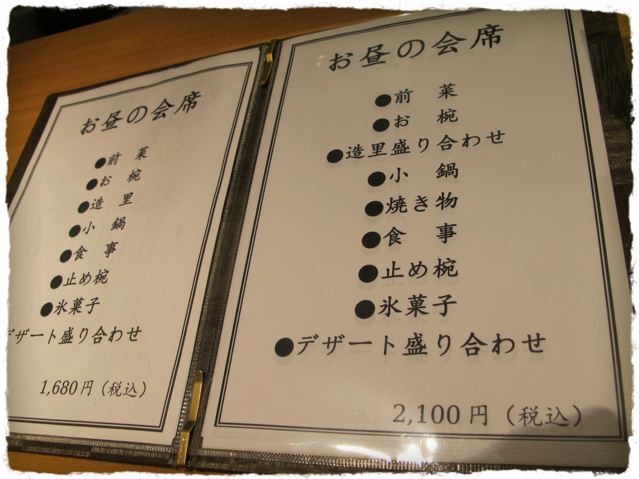 お昼の会席
●前 菜
●お 椀
●造 里
●小 鍋
●食 事
●止め椀
●氷菓子
デザート盛り合わせ
1,680円（税込）
お昼の会席
●前 菜
●お 椀
●造里盛り合わせ
●小 鍋
●焼き物
●食 事
●止め椀
●氷菓子
●デザート盛り合わせ
2,100円（税込）